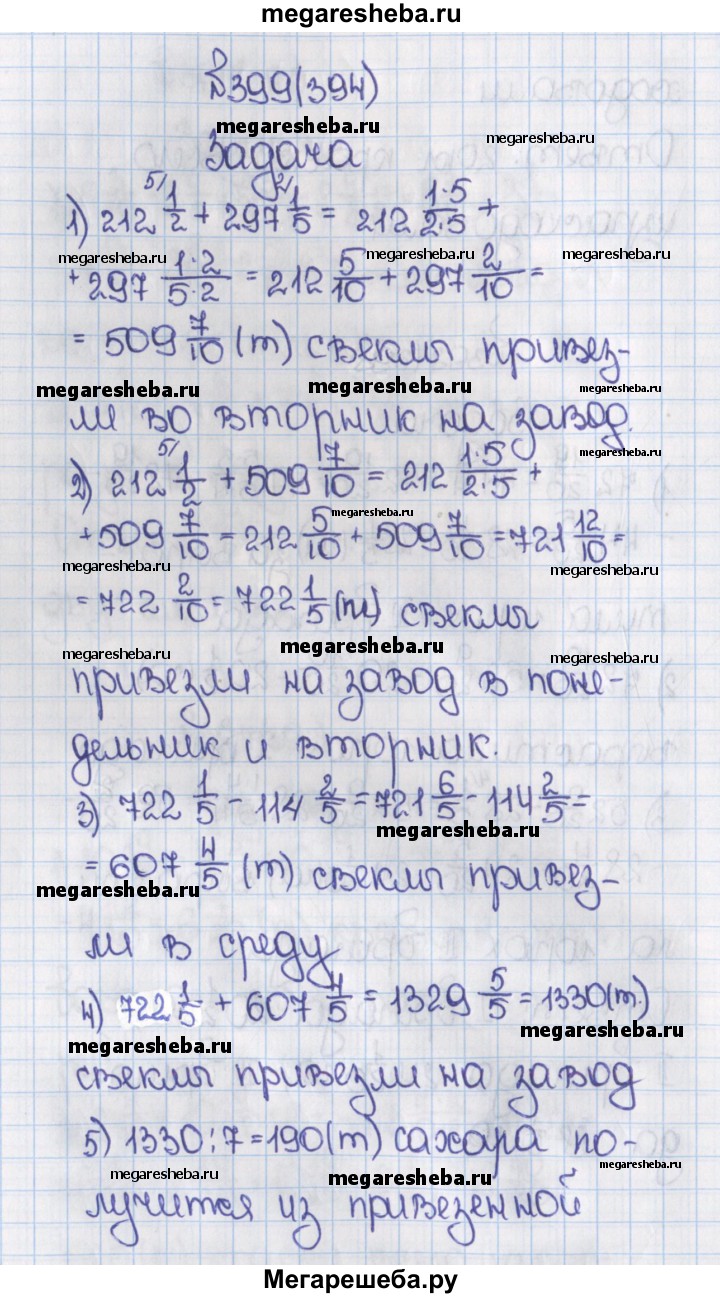 megaresheba.ru
№399(394)
megaresheba.ru
megaresheba.ru
Задача
1) 212 5/ 1/2 + 297 2/ 1/5 = 212 1·5/2·5 +
megaresheba.ru megaresheba.ru megaresheba.ru
+ 297 1·2/5·2 = 212 5/10 + 297 2/10 =
= 509 7/10 (т) свеклы привез-
megaresheba.ru megaresheba.ru megaresheba.ru
ли во вторник на завод.
megaresheba.ru
2) 212 5/ 1/2 + 509 7/10 = 212 1·5/2·5 +
megaresheba.ru
+ 509 7/10 = 212 5/10 + 509 7/10 = 721 12/10 =
megaresheba.ru megaresheba.ru
= 722 2/10 = 722 1/5 (т) свеклы
megaresheba.ru megaresheba.ru megaresheba.ru
привезли на завод в поне-
дельник и вторник.
3) 722 1/5 - 114 2/5 = 721 6/5 - 114 2/5 =
megaresheba.ru
= 607 4/5 (т) свеклы привез-
megaresheba.ru megaresheba.ru
ли в среду
4) 722 1/5 + 607 4/5 = 1329 5/5 = 1330(т.)
megaresheba.ru megaresheba.ru
свеклы привезли на завод
5) 1330:7=190(т) сахара по-
megaresheba.ru megaresheba.ru megaresheba.ru
лучится из привезенной
Мегарешеба.ру